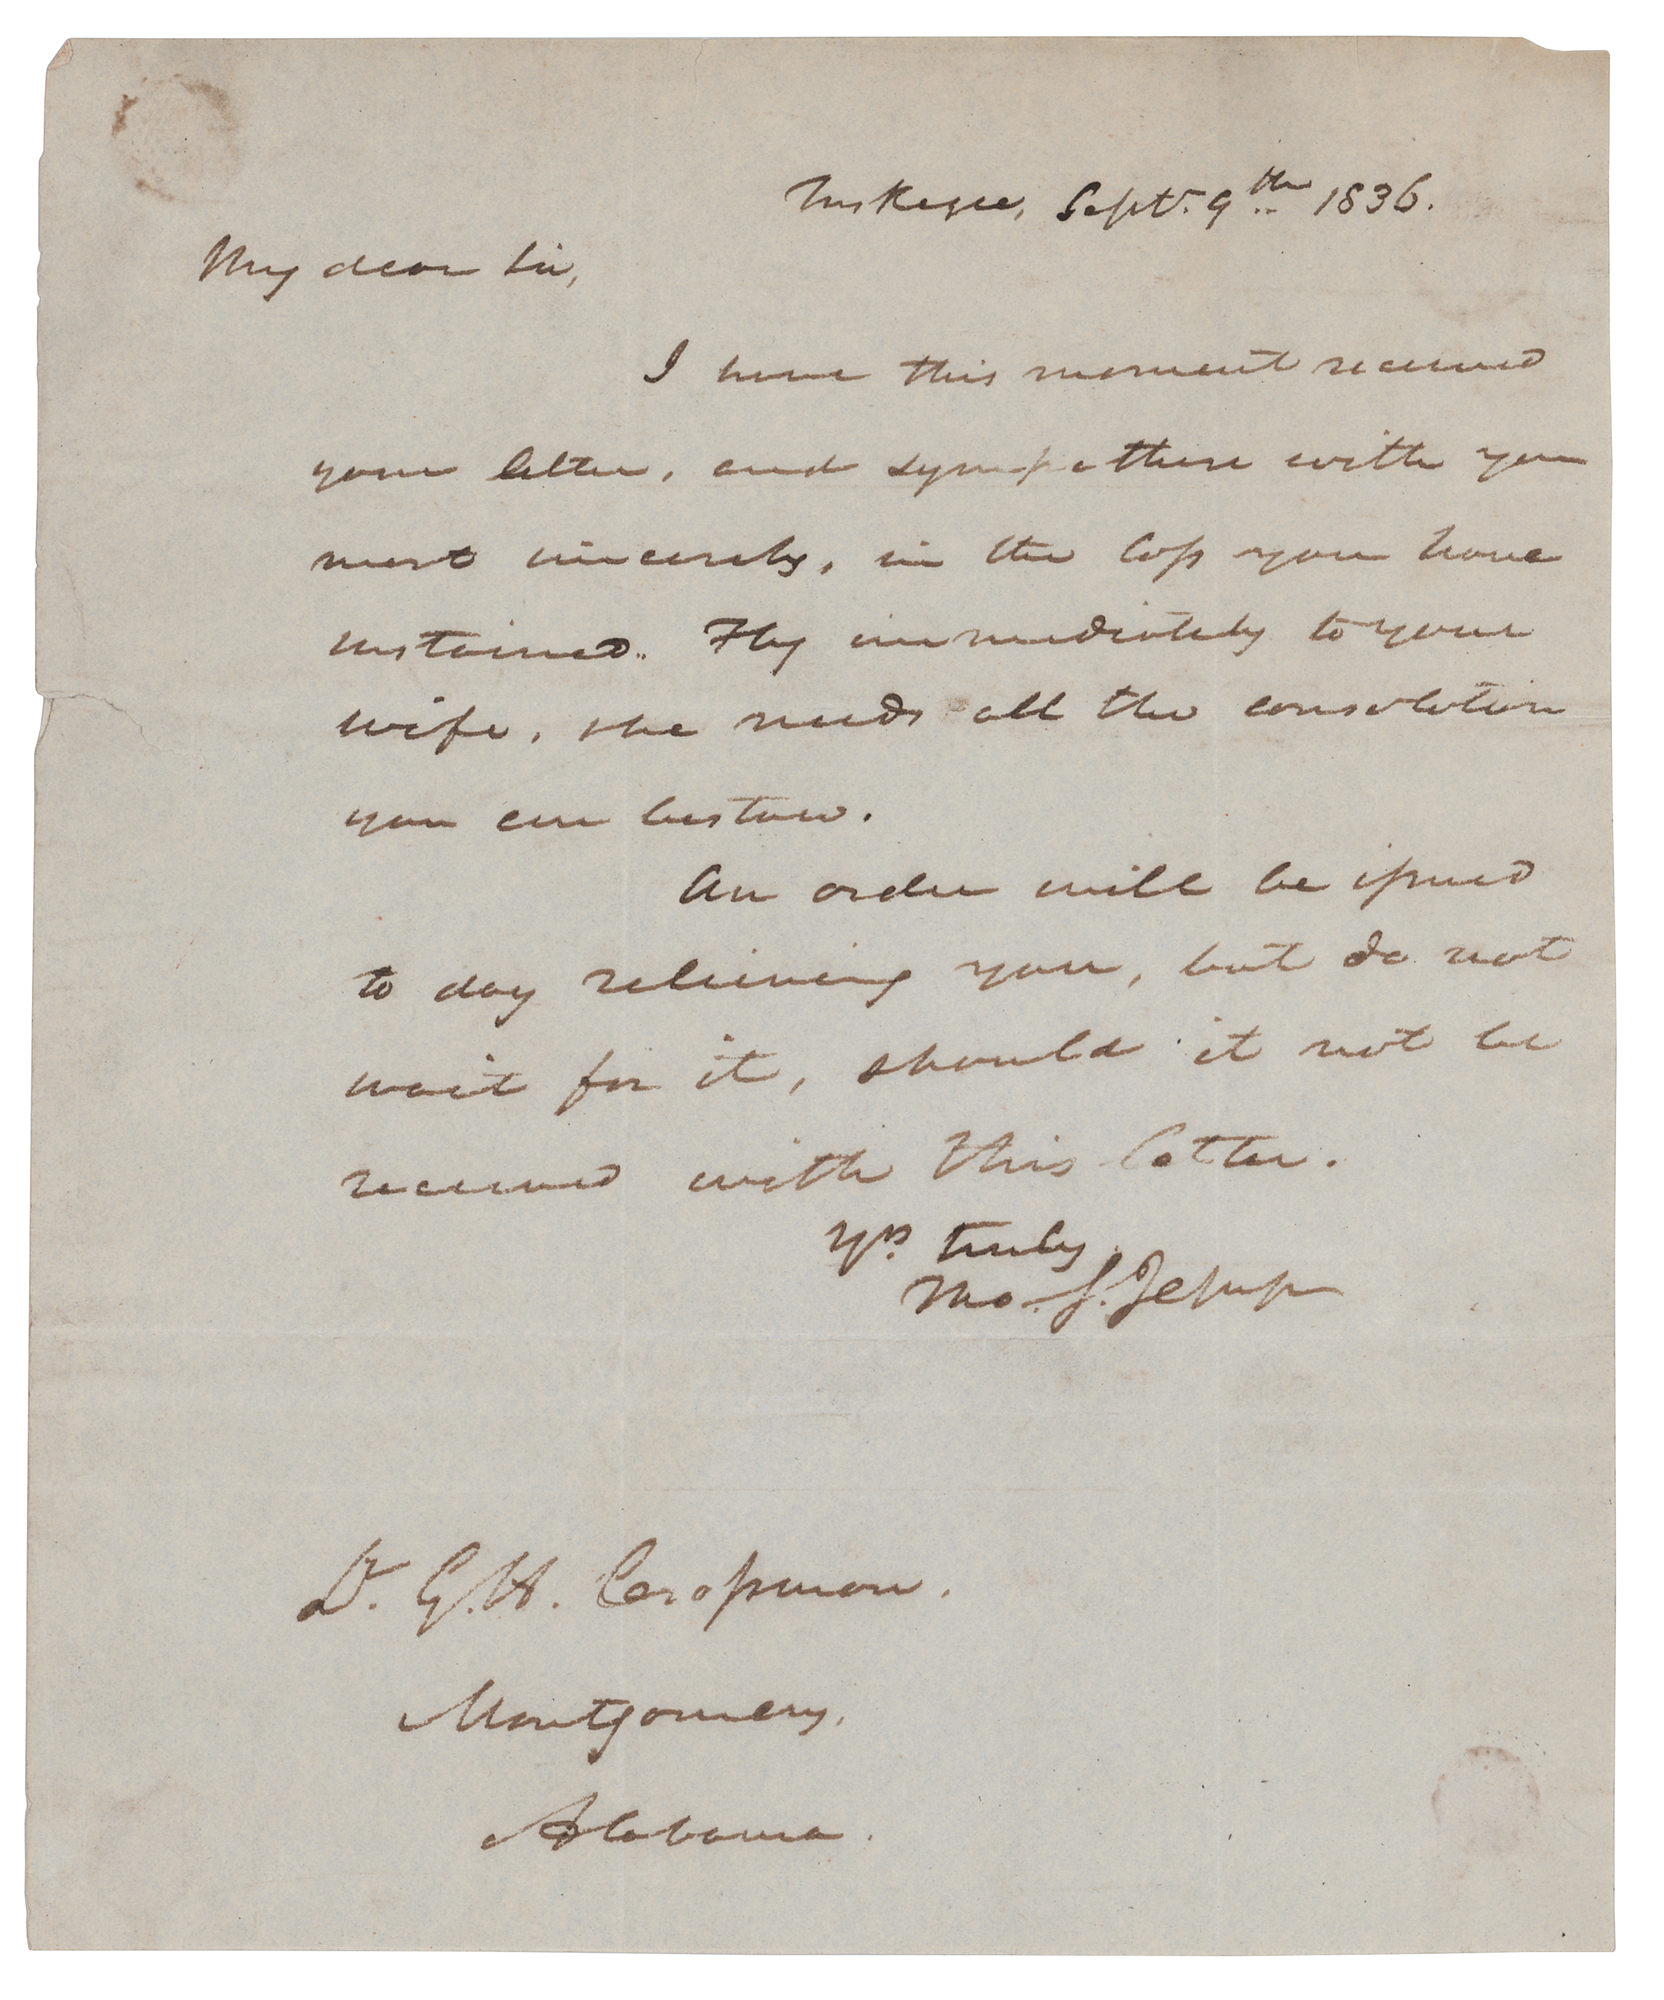 Tuskegee, Sept. 9th 1836.
My dear Sir,
I have this moment received
your letter, and sympathise with you
most sincerely, in the loss you have
sustained. Fly immediately to your
wife, she needs all the consolation
you can bestow.
An order will be issued
to day relieving you, but do not
wait for it, should it not be
received with this letter.
Yrs. truly
Tho. S. Jesup
Dr. G. H. Crossman.
Montgomery,
Alabama.